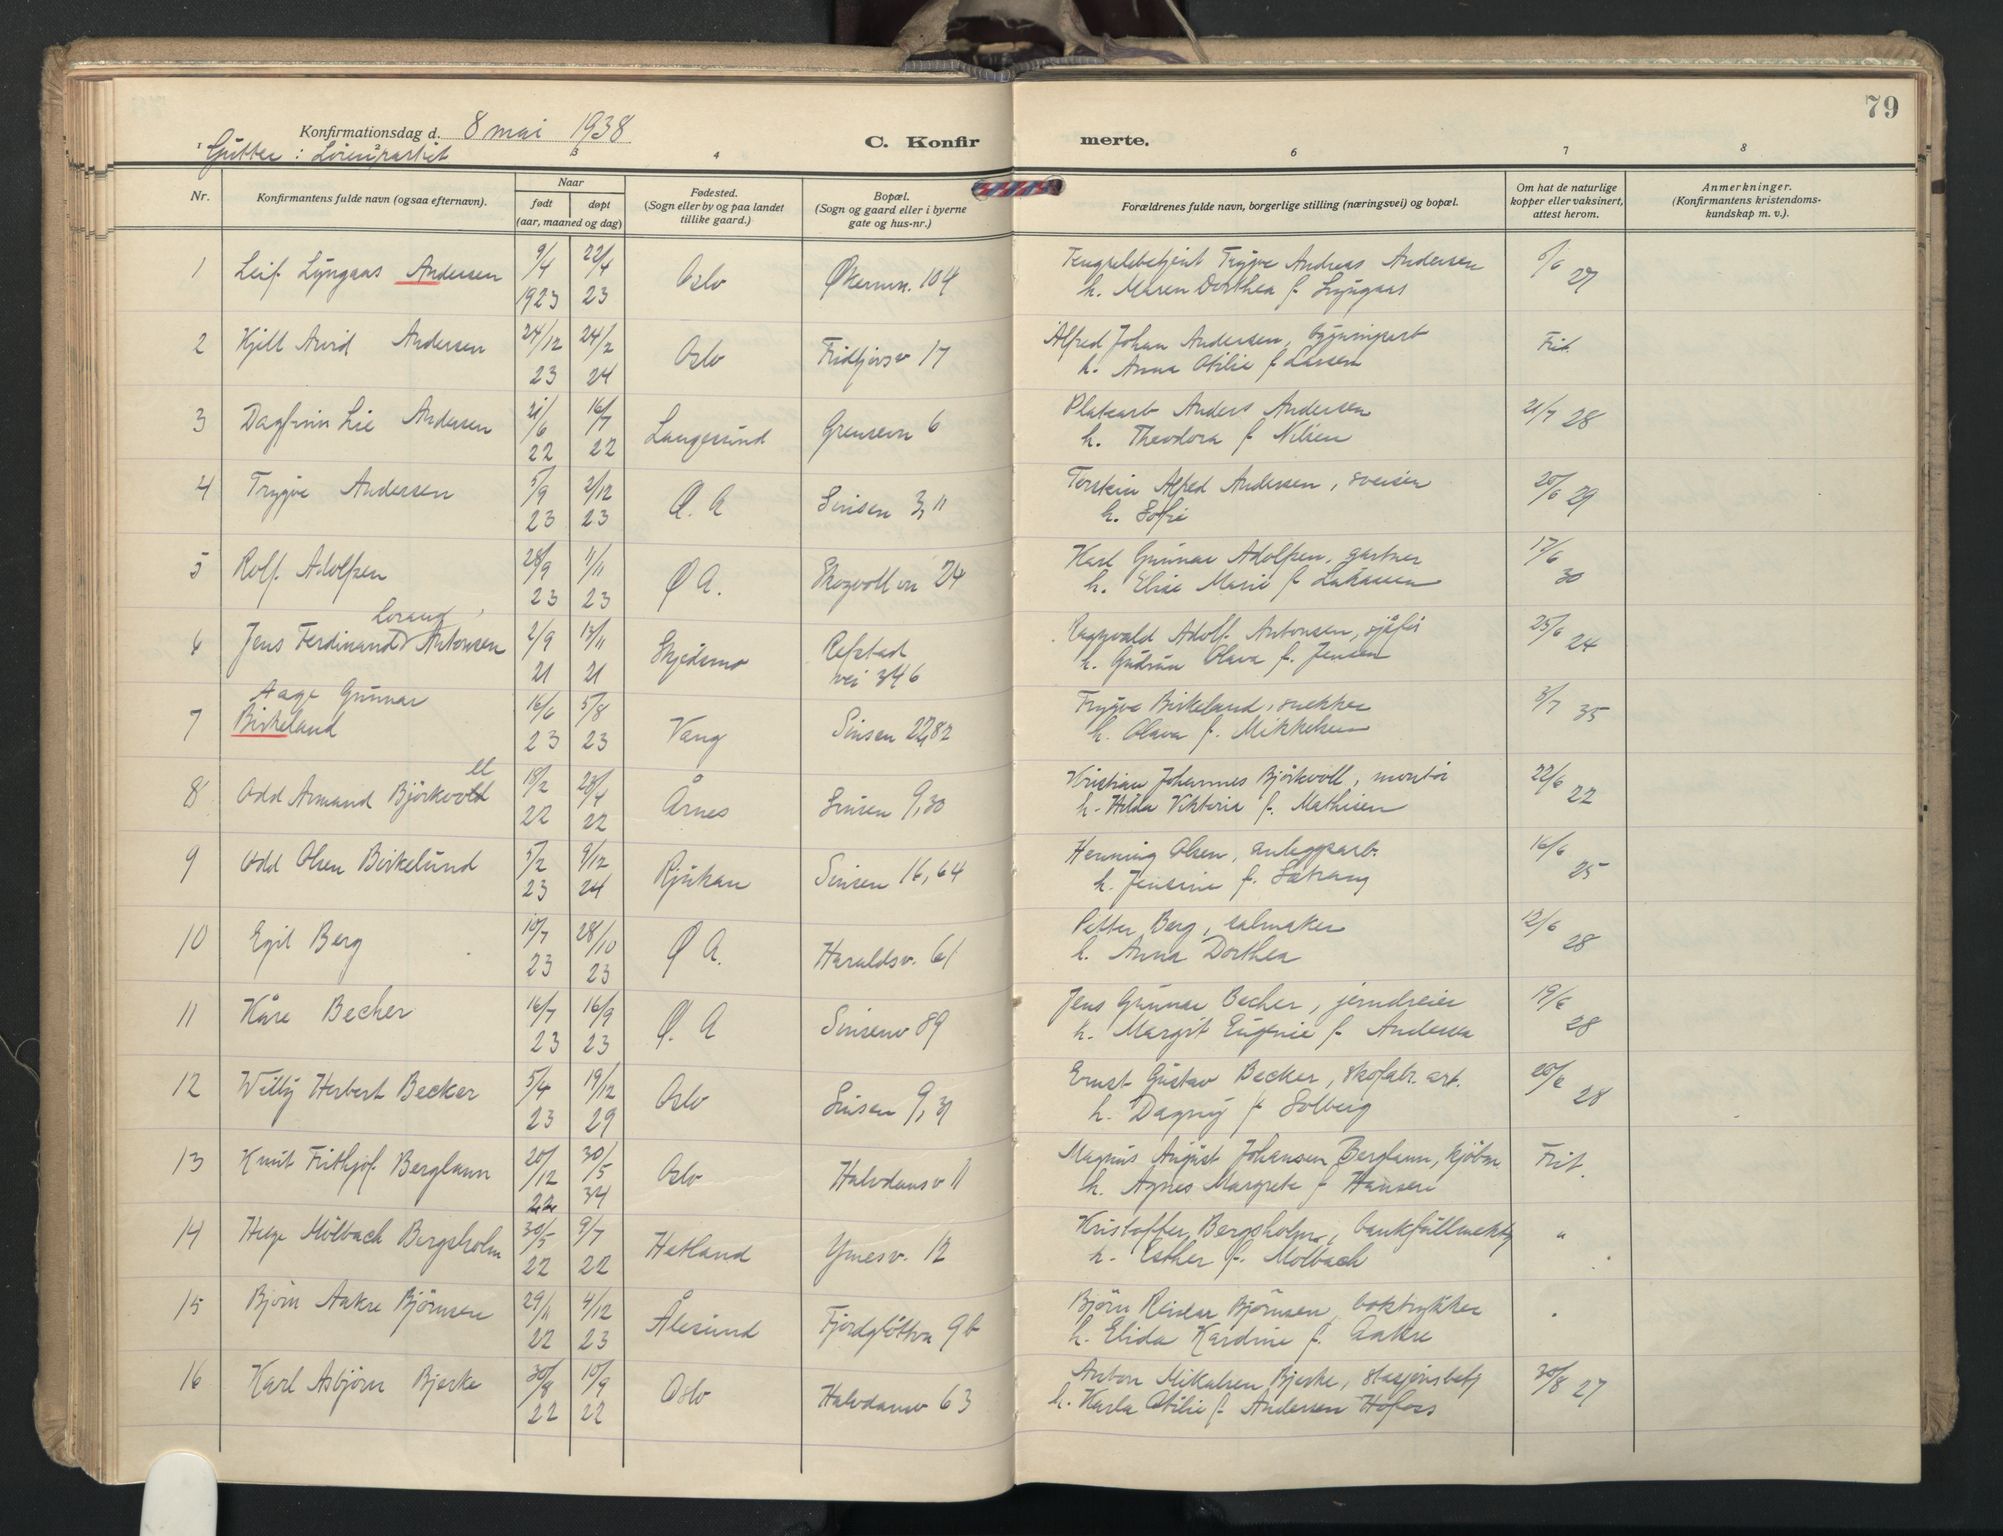 79
Konfirmationsdag d. 8 mai 1938
C. Konfirmerte.
Gutter :
1 2 3 4 6 7 8
Nr.
Konfirmantens fulde navn (ogsaa efternavn).
Naar
født døpt
(aar, maaned og dag)
Fødested.
(Sogn eller by og paa landet
tillike gaard.)
Bopæl.
(Sogn og gaard eller i byerne
gate og hus-nr.)
Forældrenes fulde navn, borgerlige stilling (næringsvei) og bopæl.
Om hat de naturlige
kopper eller vaksinert,
attest herom.
Anmerkninger.
(Konfirmantens kristendoms-
kundskap m. v.).
1 Leif Lyngaas Andersen 9/4 1923 22/4 23 Oslo Økernvn. 104 Trygve Andreas Andersen
h. Maren Dorthea f. Lyngaas 27
2 Kjell Arvid Andersen 24/12 23 24/2 24 Oslo Fridtjovsv 17 Alfred Johan Andersen, bygningsarb
h. Anna Otilie f Larsen Frit.
3 Dagfinn Lie Andersen 21/6 22 16/7 22 Langesund Grensevn 6 Platearb Anders Andersen
h. Theodora f. Nilsen 21/7 28
4 Trygve Andersen 5/9 23 2/12 23 Ø. A Sinsen 3, 11 Torstein Alfred Andersen, sveisen
h. Sofie 20/6 29
5 Rolf Adolfsen 28/9 23 11/11 23 Ø A. Skogvollvn 24 Karl Gunnar Adolfsen, gartner
h. Elise Marie f. 17/6 30
6 Jens Ferdinand Lorang Antonsen 2/9 21 13/11 21 Skjedsmo Refstad
vei 346 Ragnvald Adolf Antonsen, sjåfør
h. Gudrun Olava f. Jensen 25/6 24
7 Aage Gunnar
Birkeland 16/6 23 5/8 23 Vang Sinsen 22,82 Trygve Birkeland, snekker
h. Olava f. Mikkelsen 3/7 35
8 Odd Armand Bjørkvold ll 18/2 22 23/4 22 Årnes Sinsen 9,30 Kristian Johannes Bjørkvoll, montør
h. Hilda Viktoria f. Mathisen 22/6 22
9 Odd Olsen Birkelund 5/2 23 9/12 24 Rjukan Sinsen 16,64 Henning Olsen, anleggsarb.
h. Jensine f. Sætrang 16/6 25
10 Egil Berg 10/7 23 28/10 23 Ø A. Haraldsv. 61 Petter Berg, salmaker
h. Anna Dorthea 12/6 28
11 Kåre Becher 16/7 23 16/9 23 Ø. A Sinsenv 89 Jens Gunnar Becher, jerndreier
h. Margit Eugenie f. Andersen 19/6 28
12 Willy Herbert Becker 5/4 23 19/12 29 Oslo Sinsen 9, 31 Ernst Gustav Becker, skofabr. arb.
h. Dagny f Solberg 20/6 28
13 Knut Frithjof Berglann 20/12 22 30/5 34 Oslo Halvdansv 11 Magnus August Johansen Berglann, kjøbm
h. Agnes Margrete f Hansen Frit.
14 Helge Molbach Bergsholm 30/5 22 9/7 22 Hetland Ymesv. 12 Kristoffer Bergsholm, bankfullmektig
h. Esther f. Molbach "
15 Bjørn Aakre Bjørnsen 29/11 22 4/12 23 Ålesund Fjordgløttvn 9b Bjørn Reidar Bjørnsen, boktrykker
h. Elida Kardine f. Aakre "
16 Karl Asbjørn Bjerke 30/8 22 10/9 22 Oslo Halvdansv 63 Anton Mikalsen Bjerke, stasjonsbetj
h. Karla Otilie f. Andersen Hofoss 30/8 27